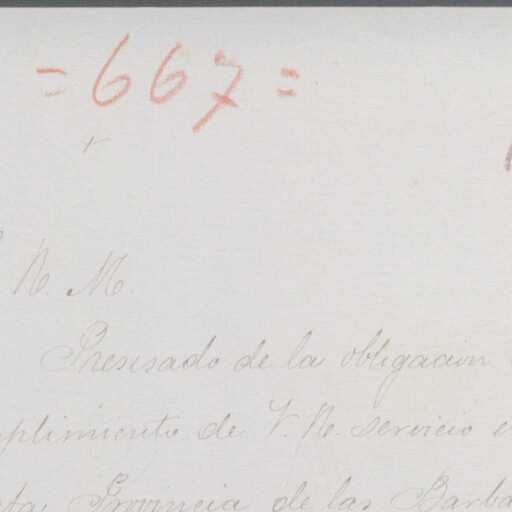 = 667 =
R. M.
Presisado de la obligacion
plimiento de V. R. servicio e
ta Provincia de las Barba